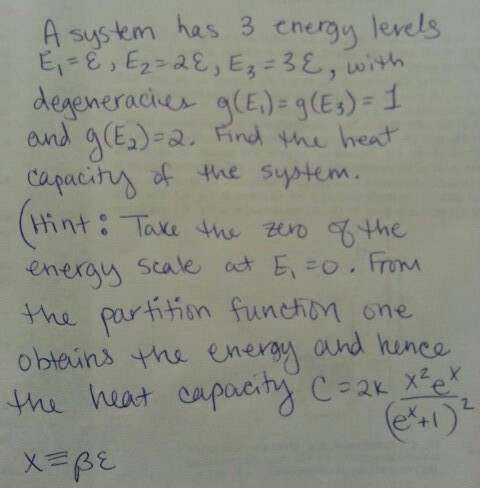 A system has 3 energy levels
E₁=ε, E₂=2ε, E₃=3ε, with
degeneracies g(E₁)=g(E₃)=1
and g(E₂)=2. Find the heat
capacity of the system.
(Hint: Take the zero of the
energy scale at E₁=0. From
the partition function one
obtains the energy and hence
the heat capacity C=2k x²eˣ/(eˣ+1)²
x≡βε